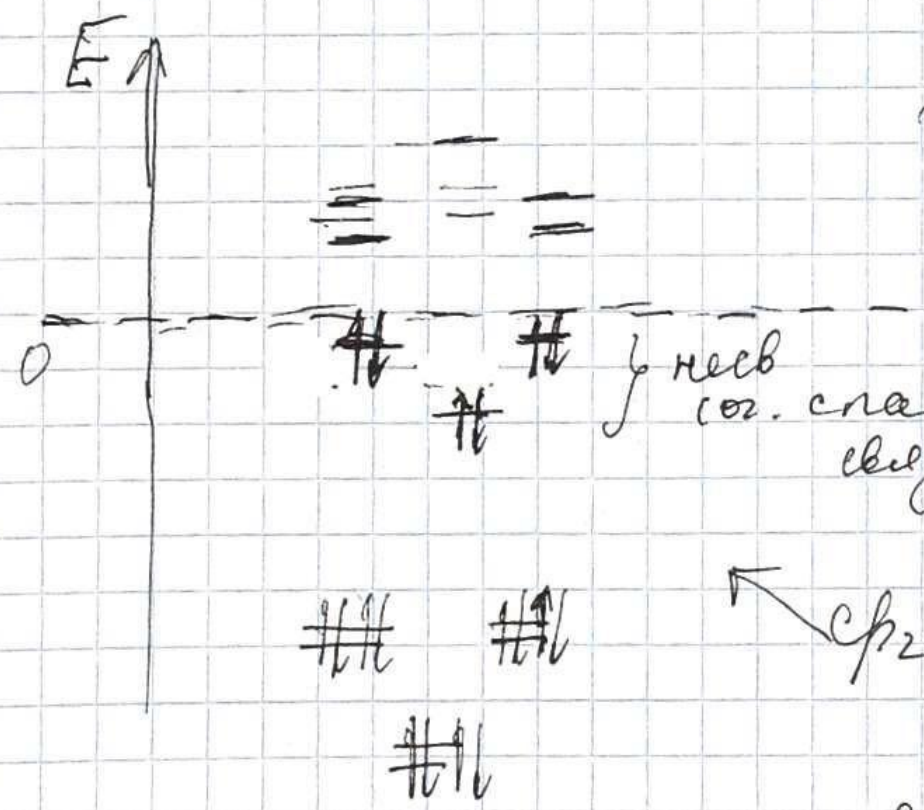 E
0
несв
сог. спа
свя
Ср2